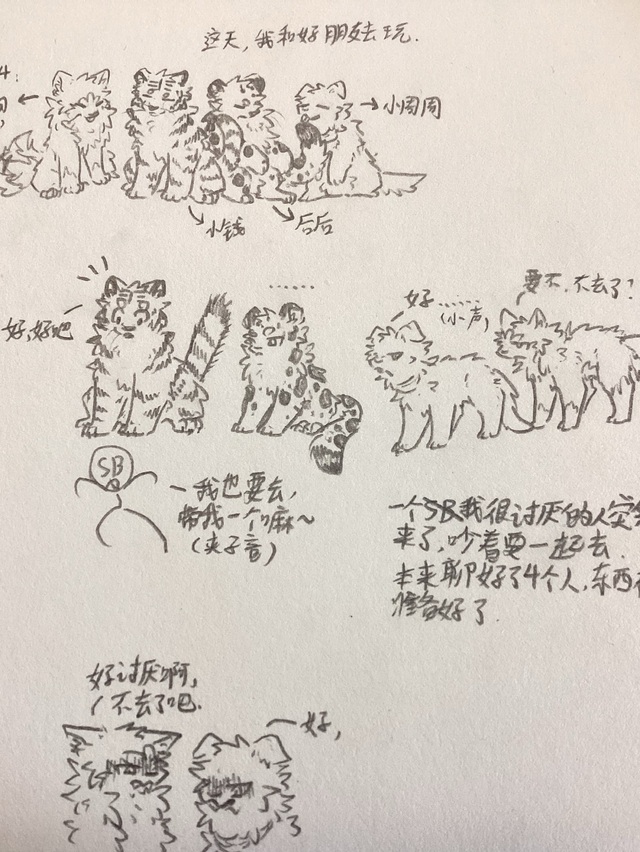 这天,我和好朋友去玩.
小周周
小钱
后后
好,好吧
......
好......
(小声)
要不,不去了?
SB
我也要去,
带我一个嘛~
(夹子音)
一个SB我很讨厌的人突
来了,吵着要一起去.
本来聊好了4个人,东西
准备好了.
好讨厌啊,
不去了吧.
好,